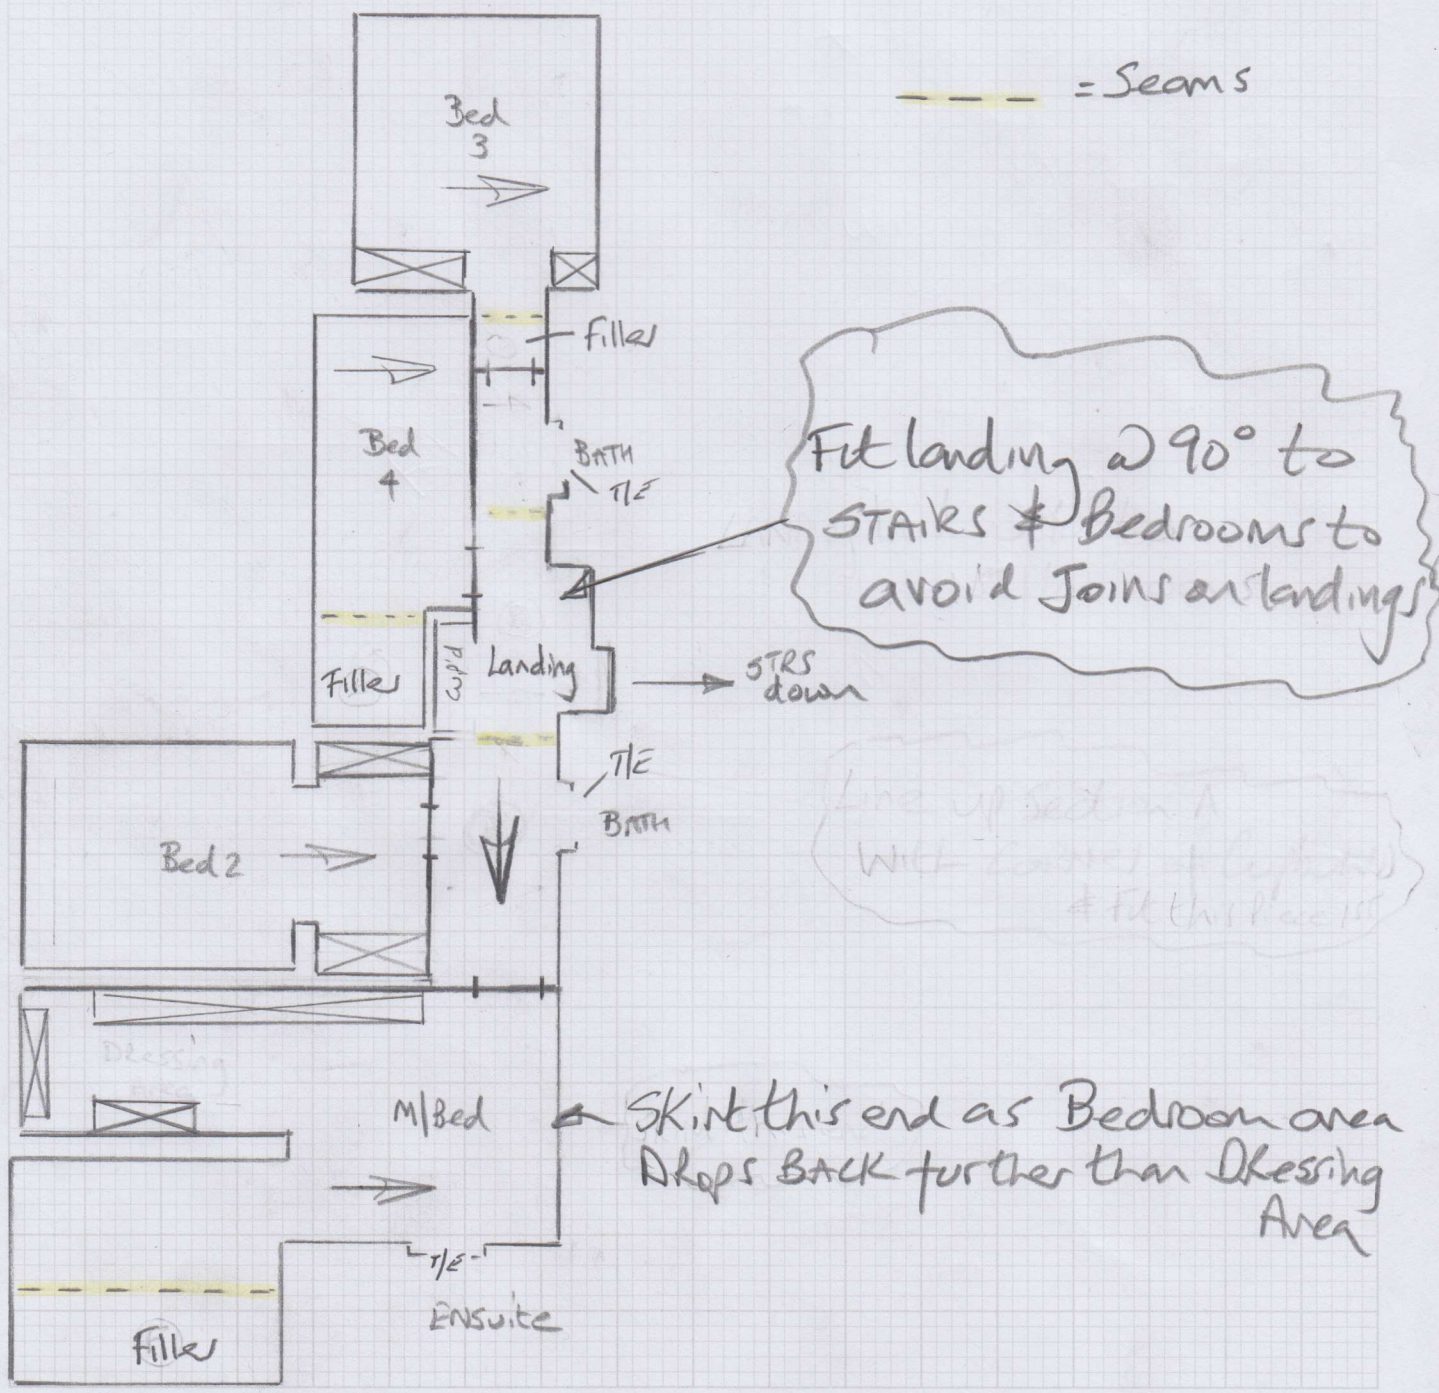 = Seams
Bed
3
Filler
Bed
4
BATH
T/E
Fit landing @ 90° to
STAIRS & Bedrooms to
avoid Joins on landings
Filler
Cup'd
Landing
STRS
down
T/E
BATH
Bed 2
Line up
& Fit this Piece 1st
Dressing
Area
M/Bed
Skirt this end as Bedroom area
DROPS BACK further than DRessing
Area
T/E
ENSuite
Filler